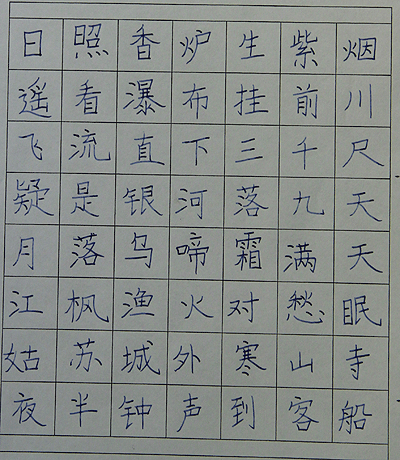 日照香炉生紫烟
遥看瀑布挂前川
飞流直下三千尺
疑是银河落九天
月落乌啼霜满天
江枫渔火对愁眠
姑苏城外寒山寺
夜半钟声到客船